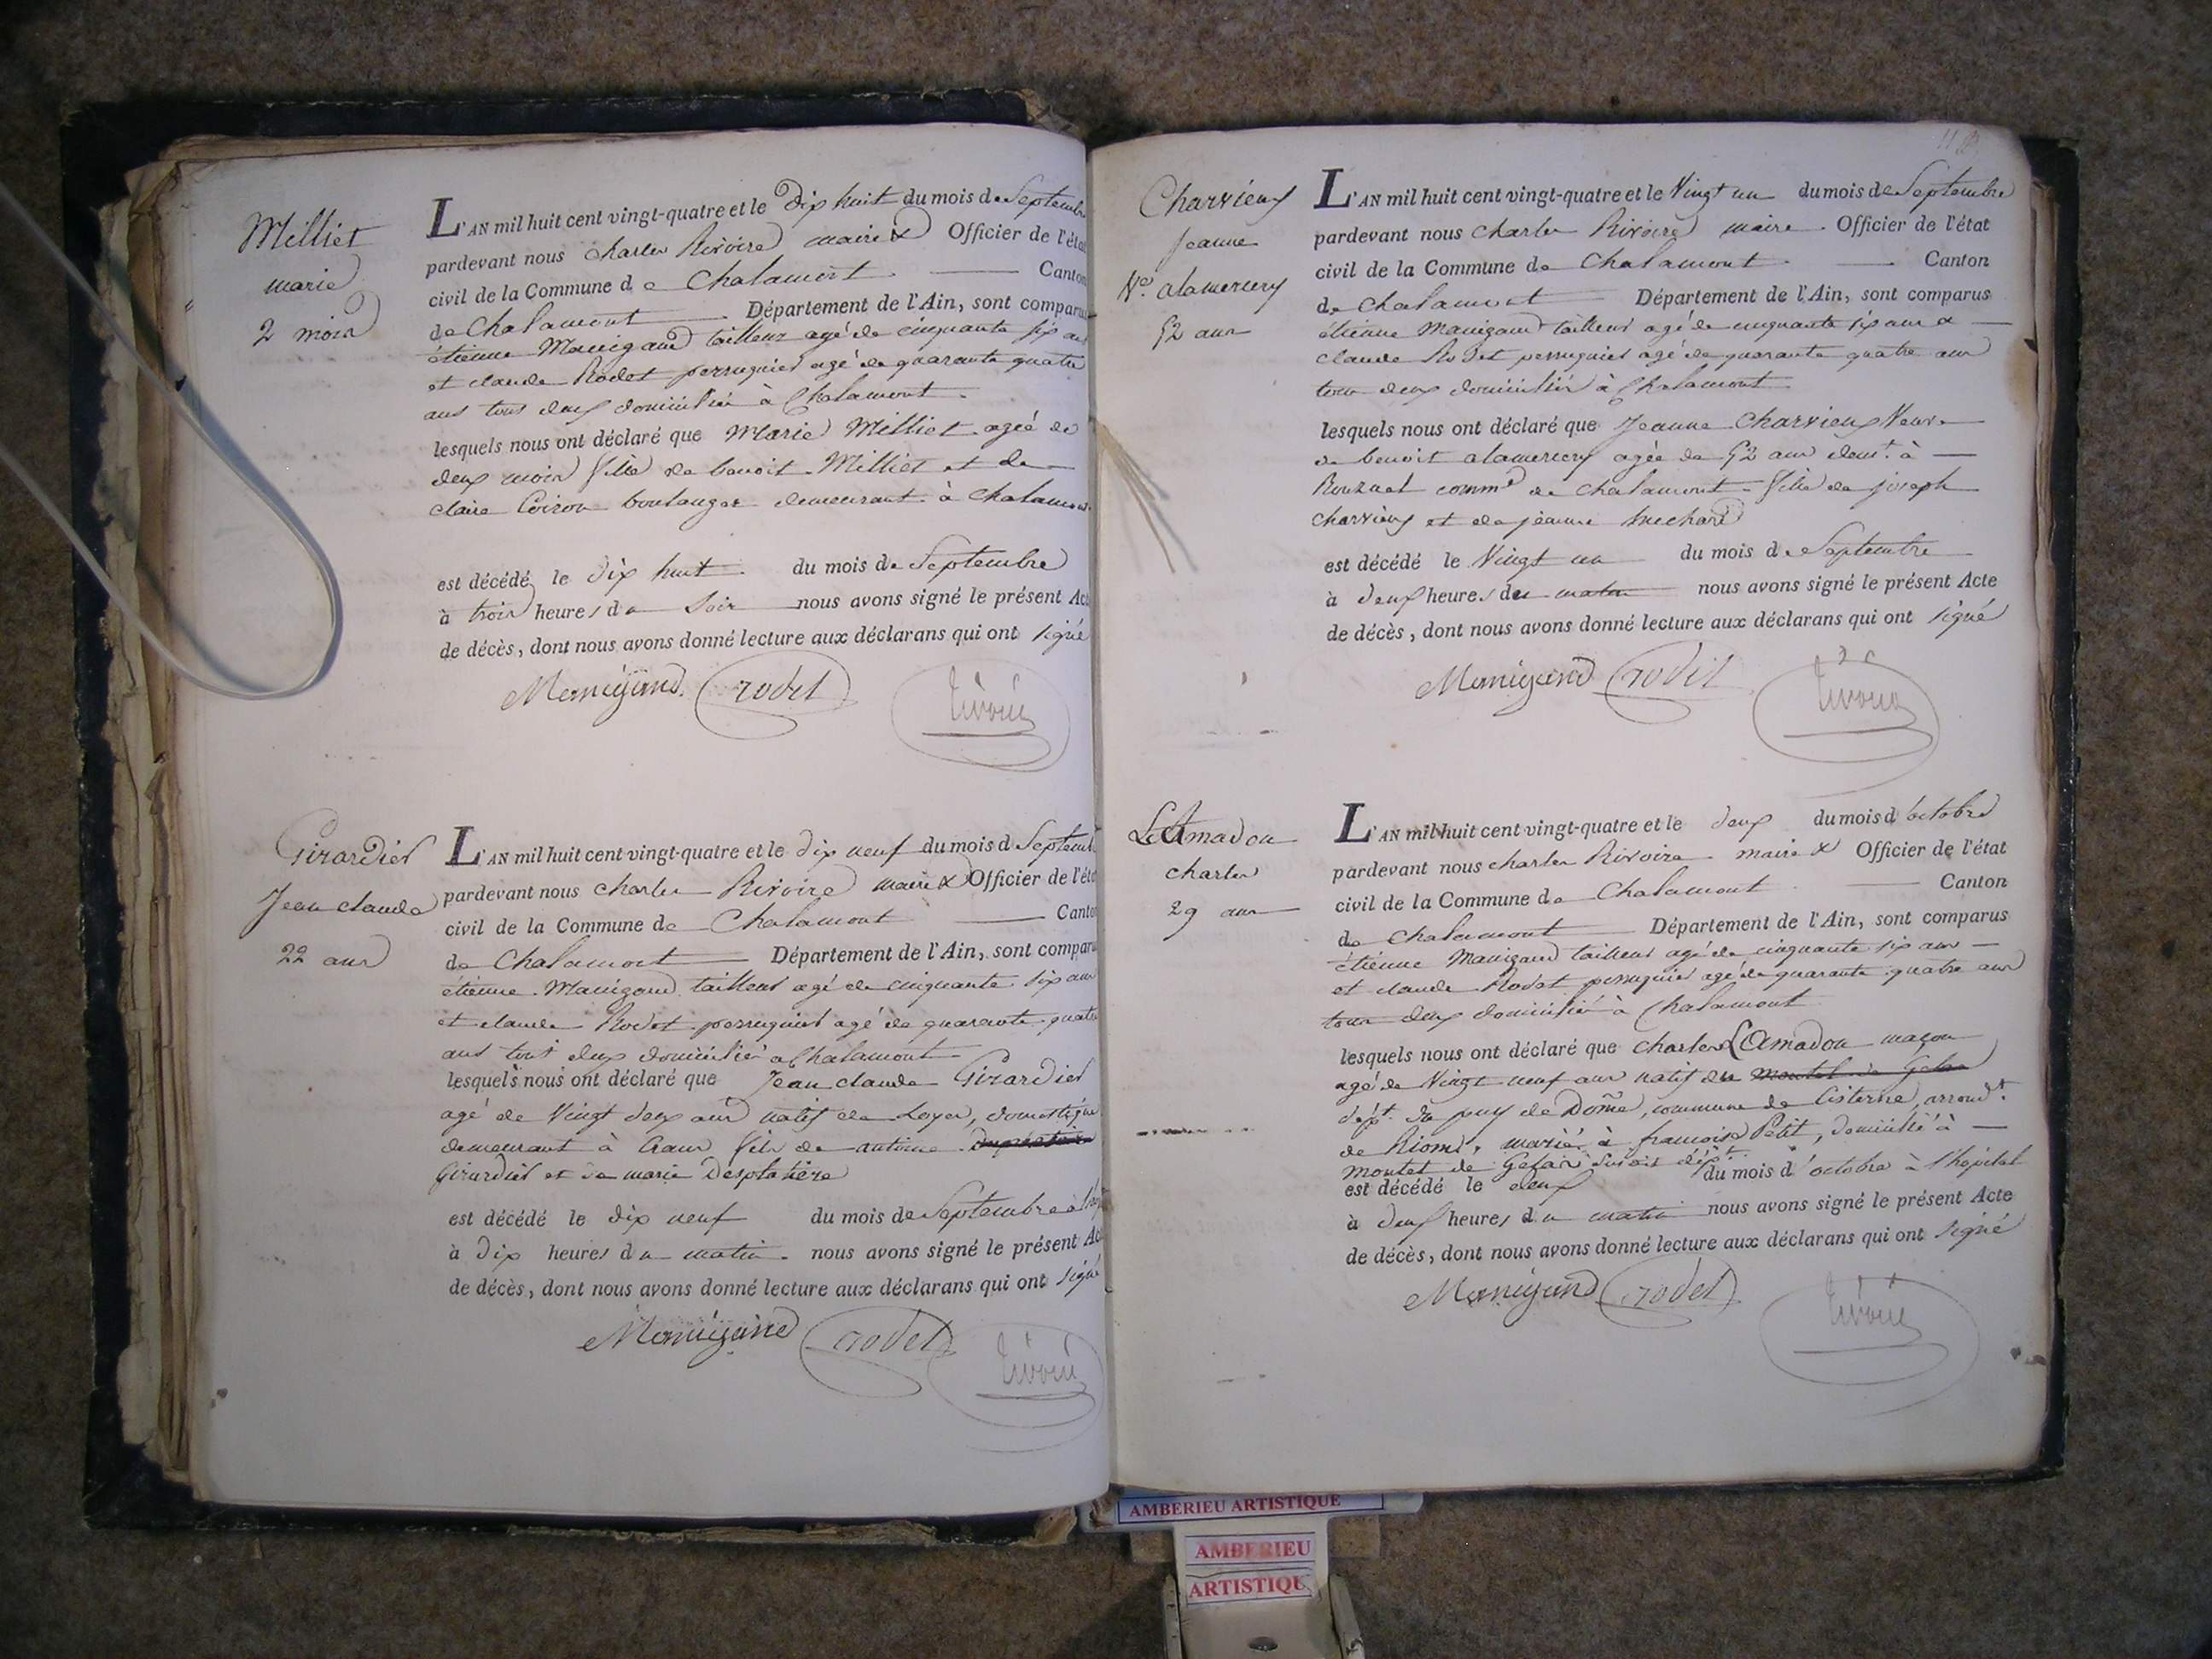 Milliet
marie
2 mois
L'AN mil huit cent vingt-quatre et le dix huit du mois de Septembre
pardevant nous charles Rivoire maire & Officier de l'état
civil de la Commune de Chalamont Canton
de Chalamont Département de l'Ain, sont comparu
étienne Manigand tailleur agé de cinquante six an
et claude Rodet perruquier agé de quarante quatre
ans tous deux domicilié à Chalamont
lesquels nous ont déclaré que Marie Milliet agée de
deux mois fille de benoit Milliet et de
claire Coizon boulanger demeurant à Chalamont
est décédé le dix huit du mois de Septembre
à trois heures du Soir nous avons signé le présent Acte
de décès, dont nous avons donné lecture aux déclarans qui ont signé
Manigand rodet rivoire
Girardier
Jean claude
22 ans
L'AN mil huit cent vingt-quatre et le dix neuf du mois d Septemb
pardevant nous charles Rivoire maire & Officier de l'éta
civil de la Commune de Chalamont Canton
de Chalamont Département de l'Ain, sont comparu
étienne Manigand tailleur agé de cinquante six ans
et claude Rodet perruquier agé de quarante quatre
ans tout deux domicilié a Chalamont
lesquels nous ont déclaré que Jean claude Girardier
agé de Vingt deux ans natif de Loyer, domestique
demeurant à Crans fils de antoine
Girardier et de marie Desplatière
est décédé le dix neuf du mois de Septembre à
à dix heures du matin nous avons signé le présent Ac
de décès, dont nous avons donné lecture aux déclarans qui ont signé
Manigand rodet rivoire
Charvieux
Jeanne
Ve. alamercery
52 ans
L'AN mil huit cent vingt-quatre et le Vingt un du mois de Septembre
pardevant nous charles Rivoire maire Officier de l'état
civil de la Commune de Chalamont Canton
de Chalamont Département de l'Ain, sont comparus
étienne Manigand tailleur agé de cinquante six ans &
claude Rodet perruquier agé de quarante quatre ans
tous deux domicilié à Chalamont
lesquels nous ont déclaré que Jeanne Charvieux Veuve
de benoit alamercery agée de 52 ans demt. à
comme de Chalamont fille de joseph
charvieux et de jeanne
est décédé le Vingt un du mois de Septembre
à deux heures du matin nous avons signé le présent Acte
de décès, dont nous avons donné lecture aux déclarans qui ont signé
Manigand rodet rivoire
L'Amadon
charles
29 ans
L'AN mil huit cent vingt-quatre et le deux du mois d'octobre
pardevant nous charles Rivoire maire & Officier de l'état
civil de la Commune de Chalamont Canton
de Chalamont Département de l'Ain, sont comparus
étienne Manigand tailleur agé de cinquante six ans
et claude Rodet perruquier agé de quarante quatre ans
tous deux domicilié à Chalamont
lesquels nous ont déclaré que charles L'Amadon maçon
agé de Vingt neuf ans natif du montel de Gelat
dépt. du puy de Dome, commune de Cisterne, arrondt.
de Riom, marié à francoise Petit, domicilié à
montel de Gelat dépt.
est décédé le deux du mois d'octobre à l'hopital
à deux heures du matin nous avons signé le présent Acte
de décès, dont nous avons donné lecture aux déclarans qui ont signé
Manigand rodet rivoire
AMBERIEU ARTISTIQUE
AMBERIEU
ARTISTIQU